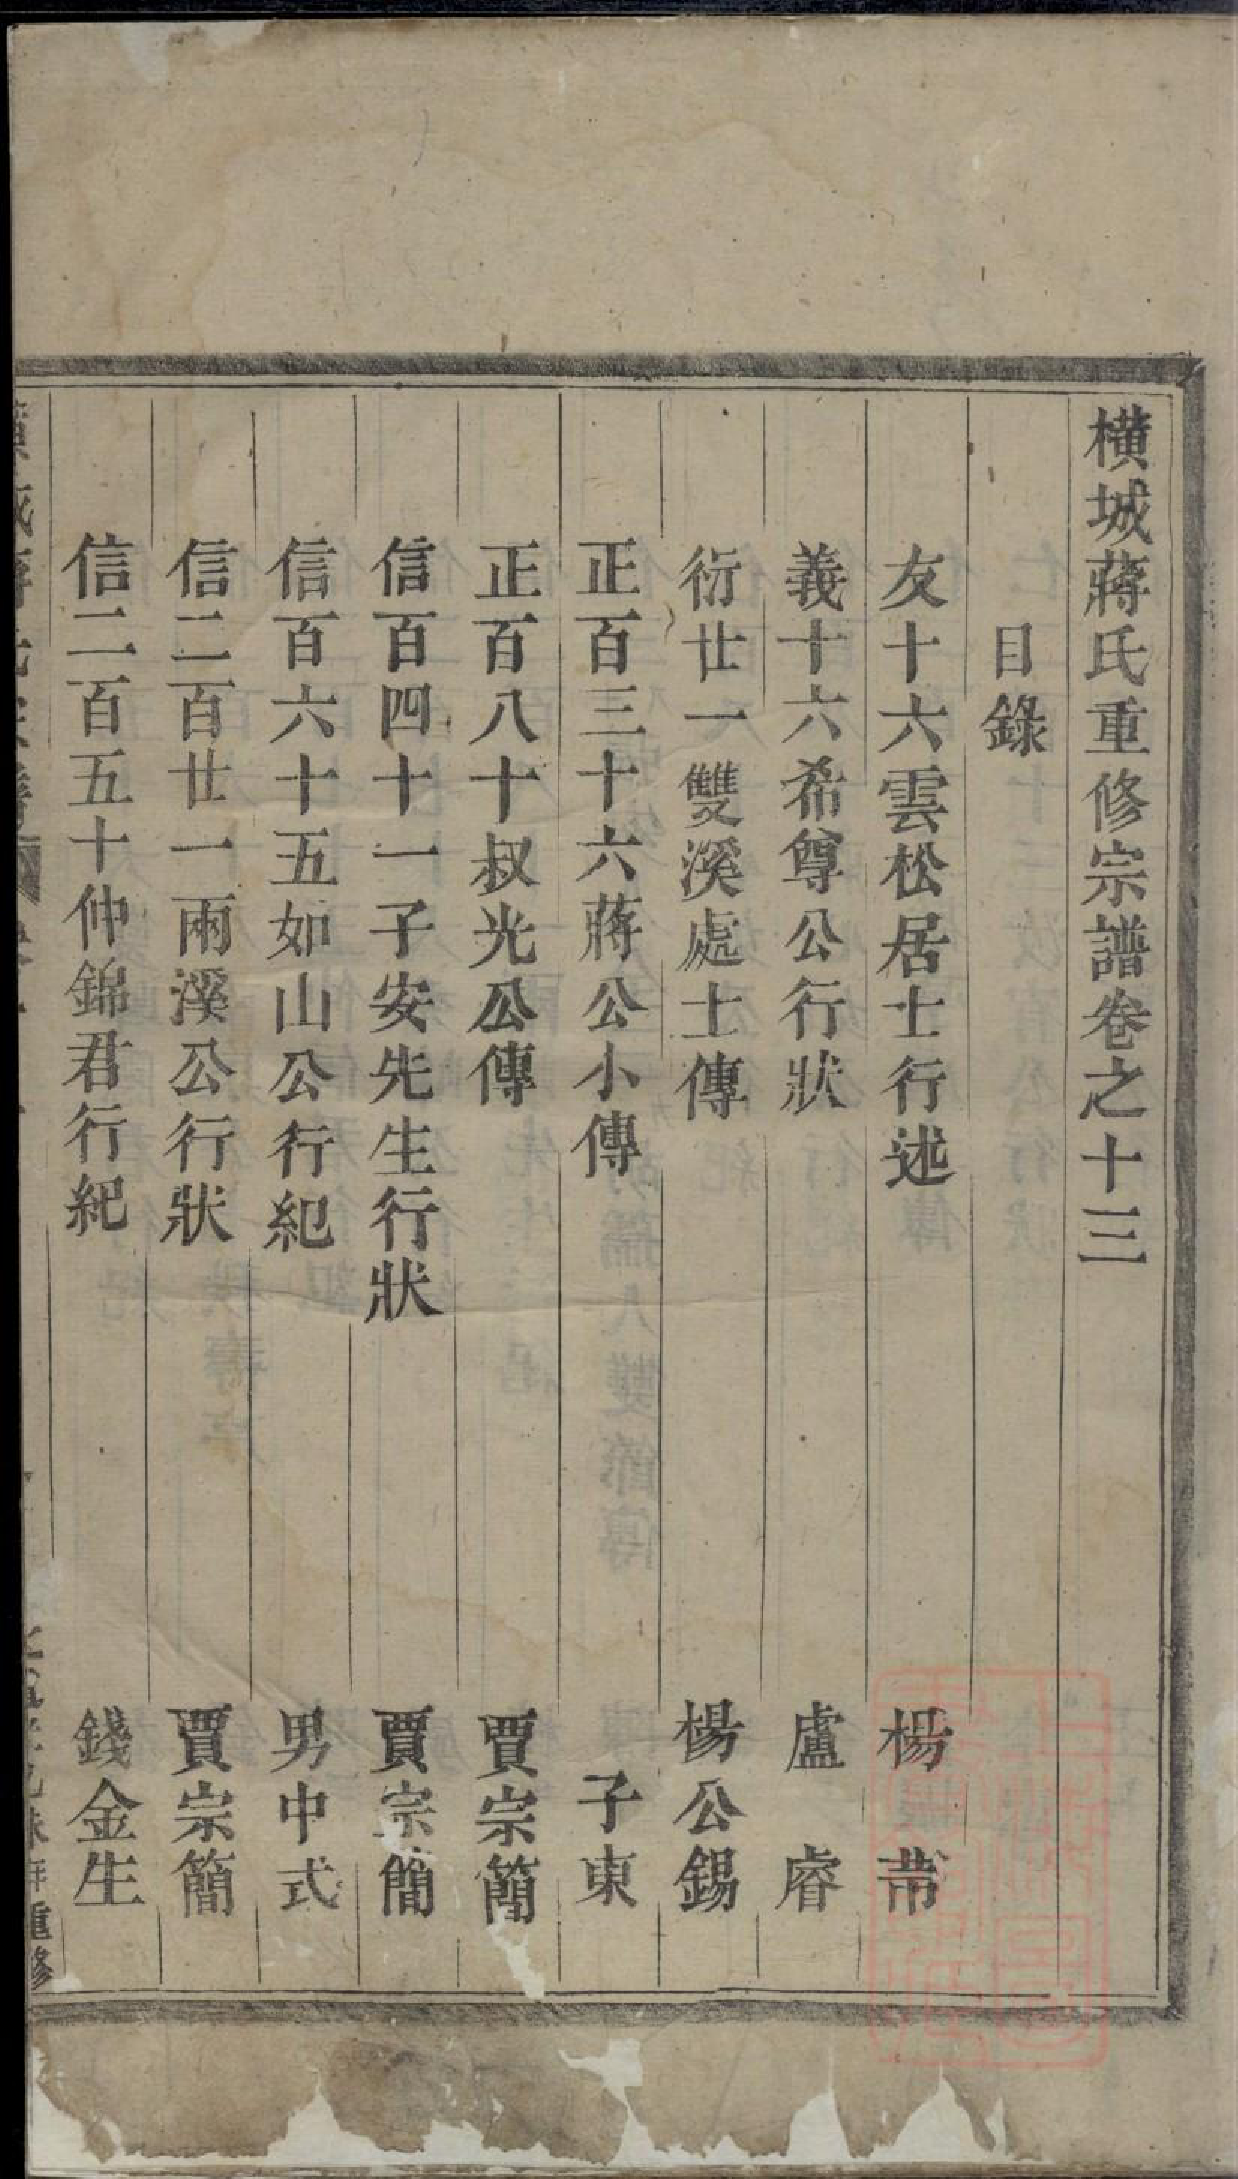 橫城蔣氏重修宗譜卷之十三
目錄
友十六雲松居士行述 楊芾
義十六希尊公行狀 盧睿
衍廿一雙溪處士傳 楊公錫
正百三十六蔣公小傳 子東
正百八十叔光公傳 賈宗簡
信百四十一子安先生行狀 賈宗簡
信百六十五如山公行紀 男中式
信二百廿一雨溪公行狀 賈宗簡
信二百五十仲錦君行紀 錢金生
重修